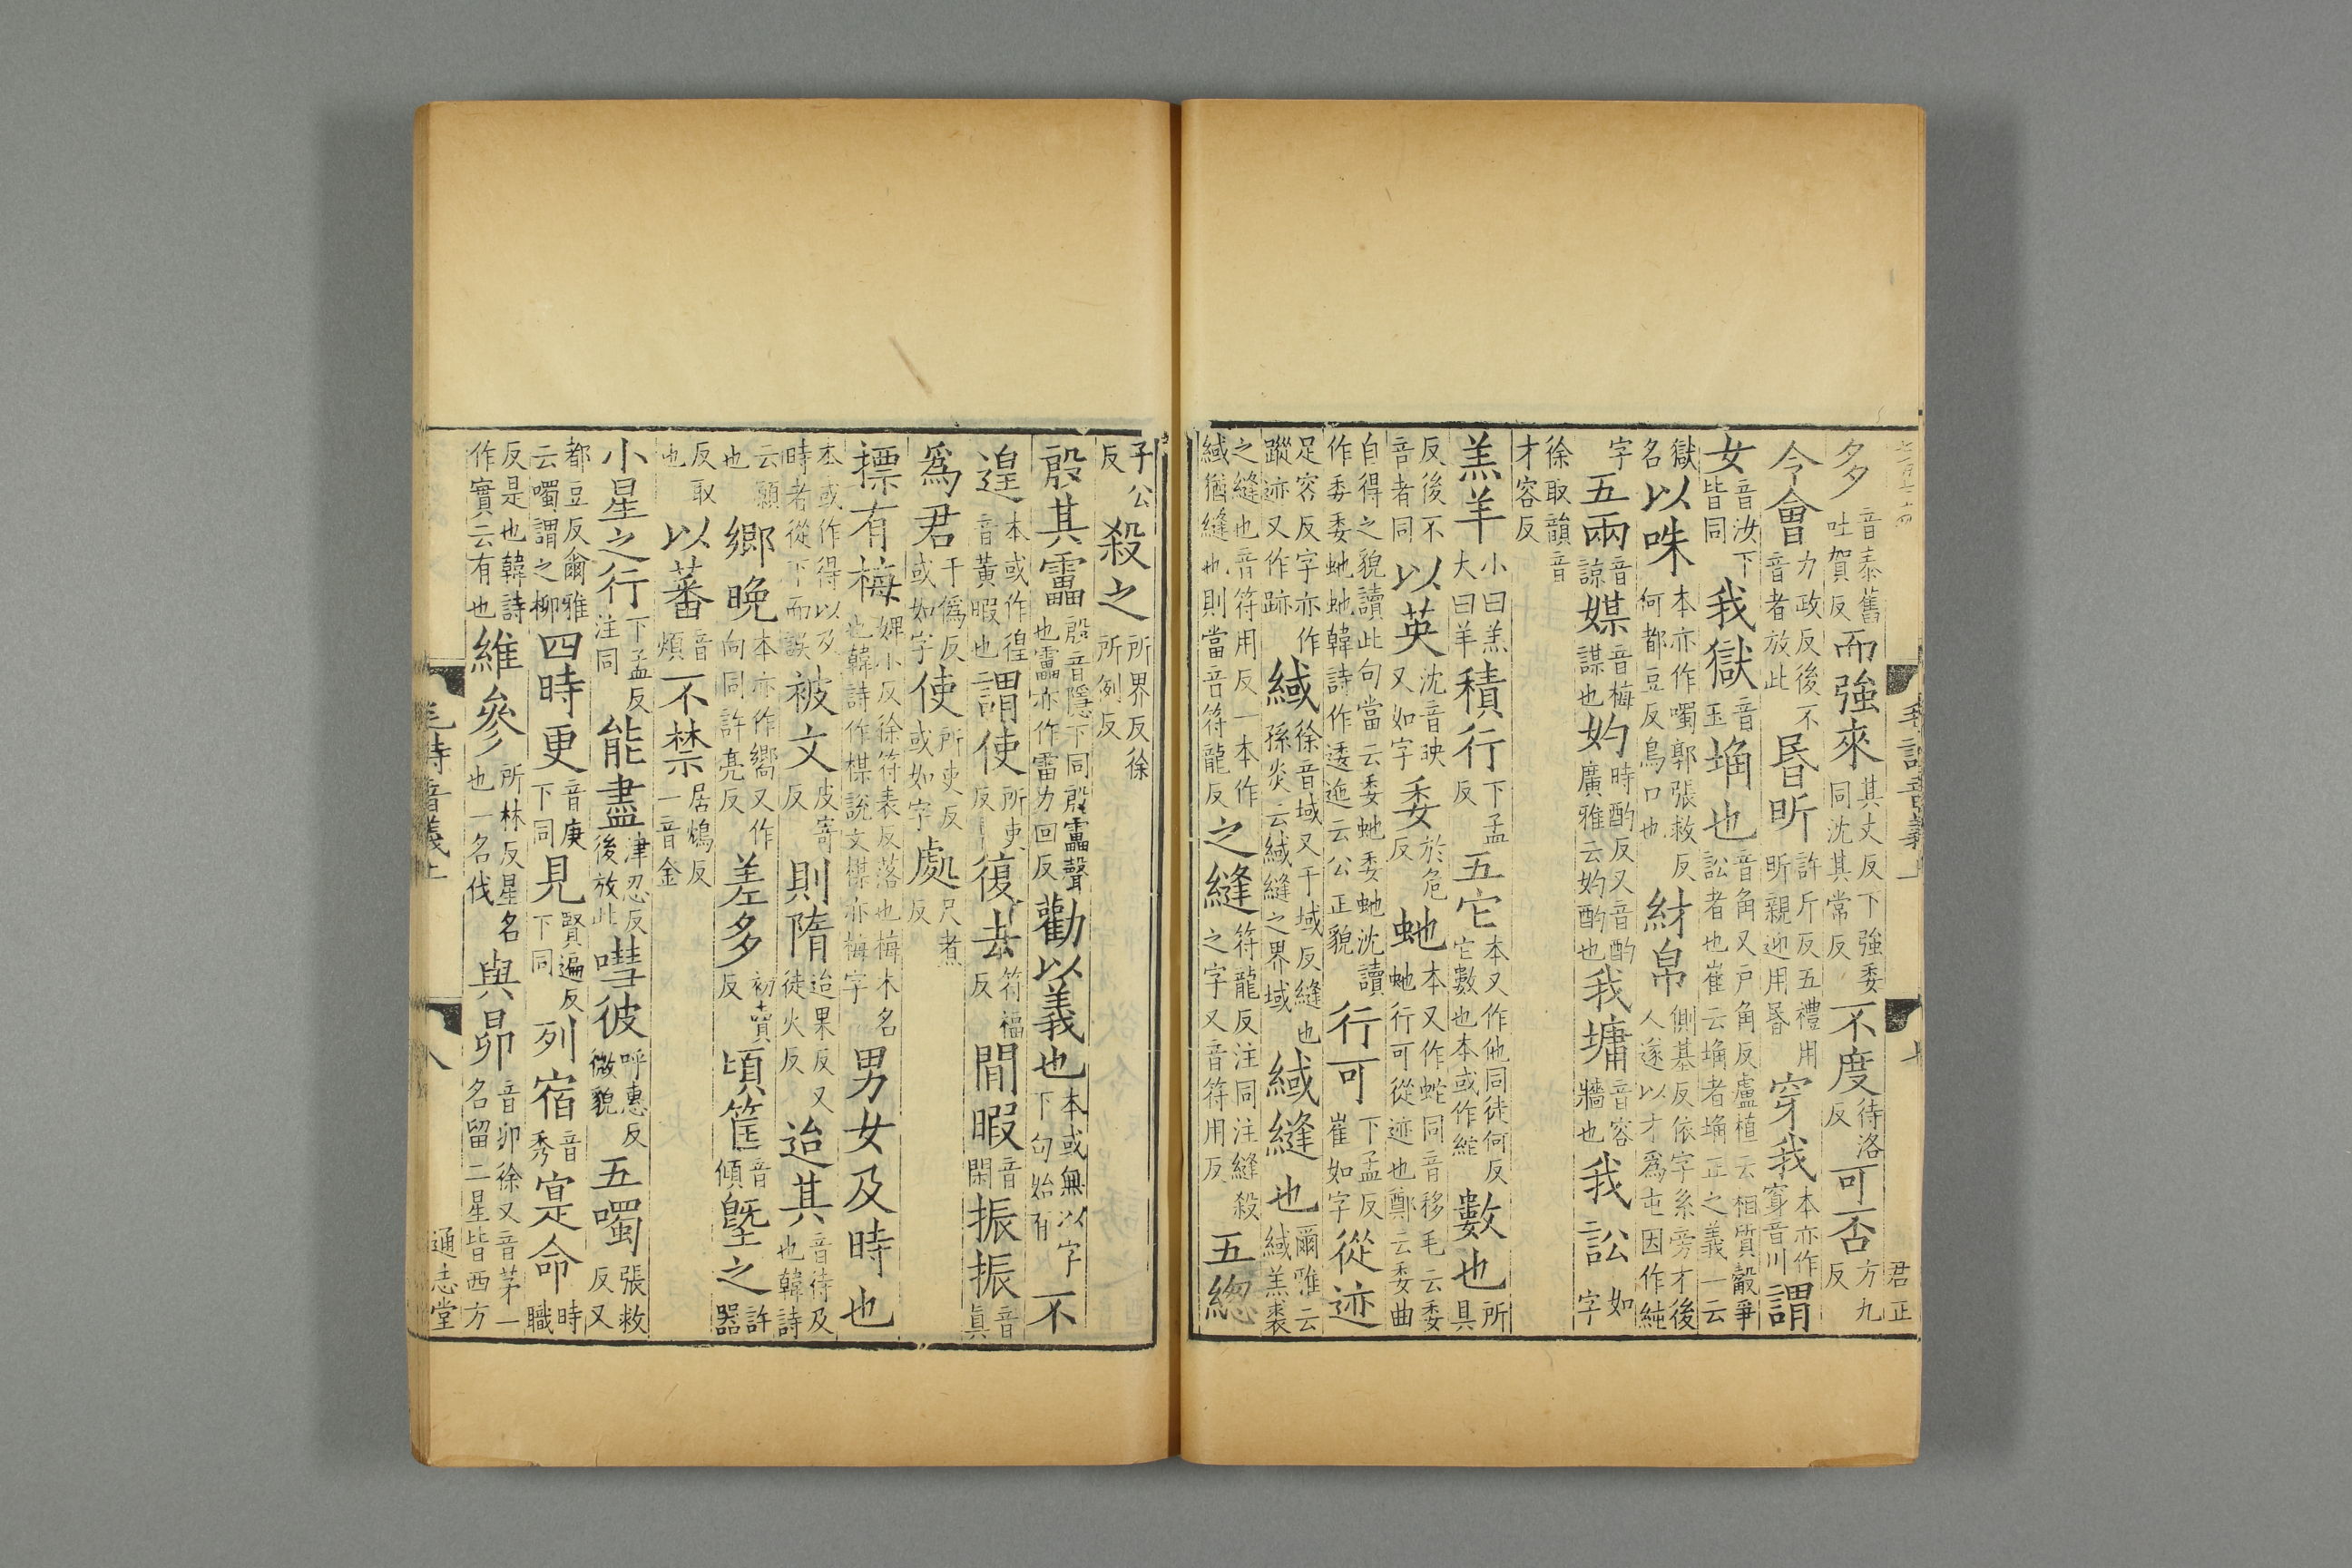 多音泰舊吐賀反而強來其丈反下強委同沈其常反不度待洛反可否方九反
令會力政反後不音者放此昬昕許斤反五禮用昕親迎用昬穿我本亦作穿音川謂
女音汝下皆同我獄音玉埆也音角又戸角反盧植云相質觳爭訟者也崔云埆者埆正之義一云
獄名以咮本亦作噣郭張救反何都豆反鳥口也紂帛側基反依字糸旁才後人遂以才爲屯因作純
字五兩音諒媒音梅謀也妁時酌反又音酌廣雅云妁酌也我墉音容牆也我訟如字
徐取韻音才容反
羔羊小曰羔大曰羊積行下孟反五它本又作他同徒何反它數也本或作紽數也所具
反後不音者同以英沈音映又如字委於危反虵本又作蛇同音移毛云委虵行可從迹也鄭云委曲
自得之貌讀此句當云委虵委虵沈讀作委委虵虵韓詩作逶迤云公正貌行可下孟反崔如字從迹
足容反字亦作蹤迹又作跡緎徐音域又于域反縫也孫炎云緎縫之界域緎縫也爾雅云緎羔裘
之縫也音符用反一本作緎猶縫也則當音符龍反之縫符龍反注同注縫殺之字又音符用反五緫
子公反殺之所界反徐所例反
殷其靁殷音隱下同殷靁聲也靁亦作雷力回反勸以義也本或無以字下句始有不
遑本或作徨音黃暇也謂使所吏反復去符福反閒暇音閑振振音眞
爲君于僞反或如字使所吏反或如字處尺煮反
摽有梅婢小反徐符表反落也梅木名也韓詩作楳說文楳亦梅字男女及時也
本或作得以及時者從下而誤被文皮寄反則隋迨果反又徒火反迨其音待及也韓詩
云願也鄉晚本亦作嚮又作向同許亮反差多初賣反頃筐音傾塈之許器
反取也以蕃音煩不禁居鴆反一音金
小星之行下孟反注同能盡津忍反後放此嘒彼呼惠反微貌五噣張救反又
都豆反爾雅云噣謂之柳四時更音庚下同見賢遍反下同列宿音秀寔命時職
反是也韓詩作實云有也維參所林反星名也一名伐與昴音卯徐又音茅一名留二星皆西方
毛詩音義上
八
通志堂